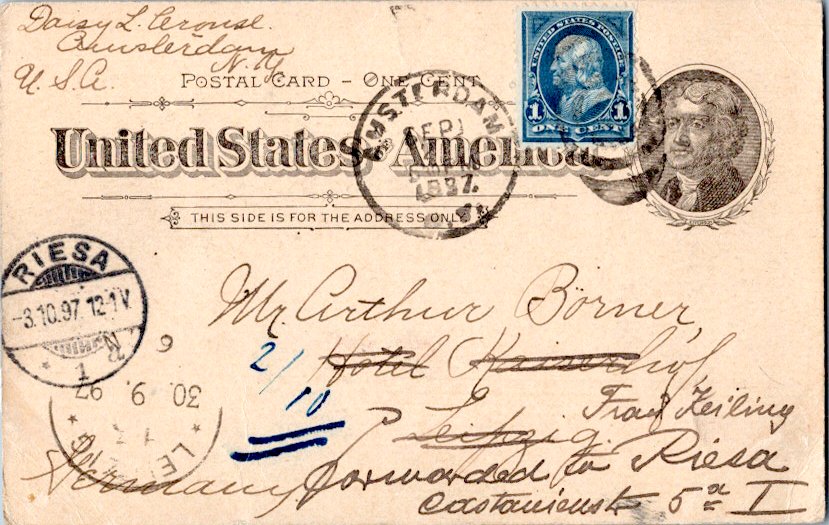 Daisy L. Crouse.
Amsterdam
N.Y.
U.S.A.
POSTAL CARD – ONE CENT
UNITED STATES POSTAGE
1 1
ONE CENT
AMSTERDAM
SEP
1897
N.Y.
United States of America
THIS SIDE IS FOR THE ADDRESS ONLY
RIESA
-3.10.97.12-1V
* 1
Mr. Arthur Börner,
Hotel Kaiserhof,
2/10
30. 9. 97
Frau Keiling
Leipzig.
Germany forwarded to Riesa
Castanienstr 5 a I